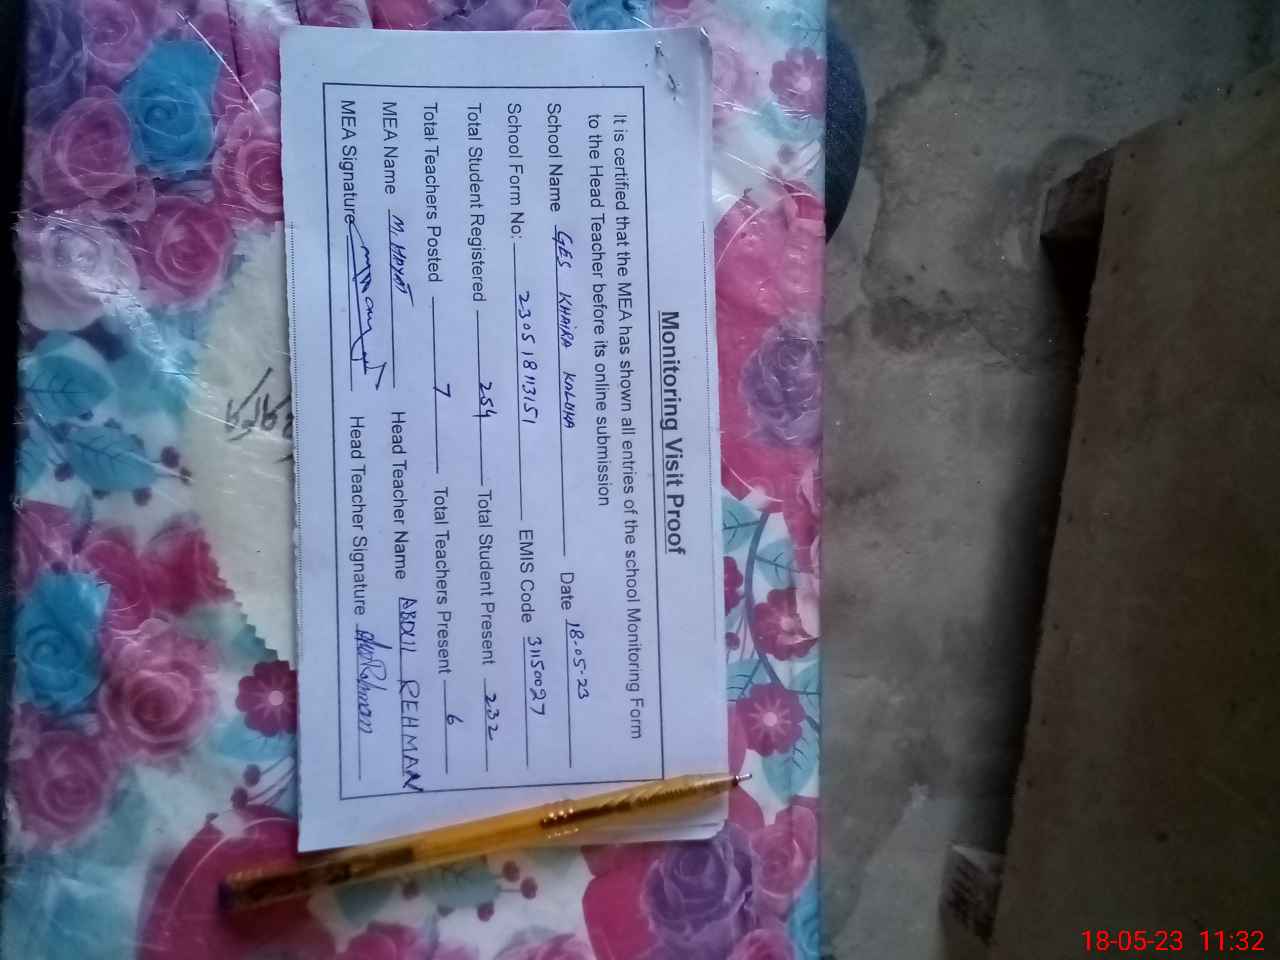 Monitoring Visit Proof
It is certified that the MEA has shown all entries of the school Monitoring Form
to the Head Teacher before its online submission
School Name GES KHAIRA KALUKA Date 18-05-23
School Form No: 230518113151 EMIS Code 31150027
Total Student Registered 254 Total Student Present 232
Total Teachers Posted 7 Total Teachers Present 6
MEA Name M. HAYAT Head Teacher Name ABDUL REHMAN
MEA Signature Head Teacher Signature
18-05-23 11:32